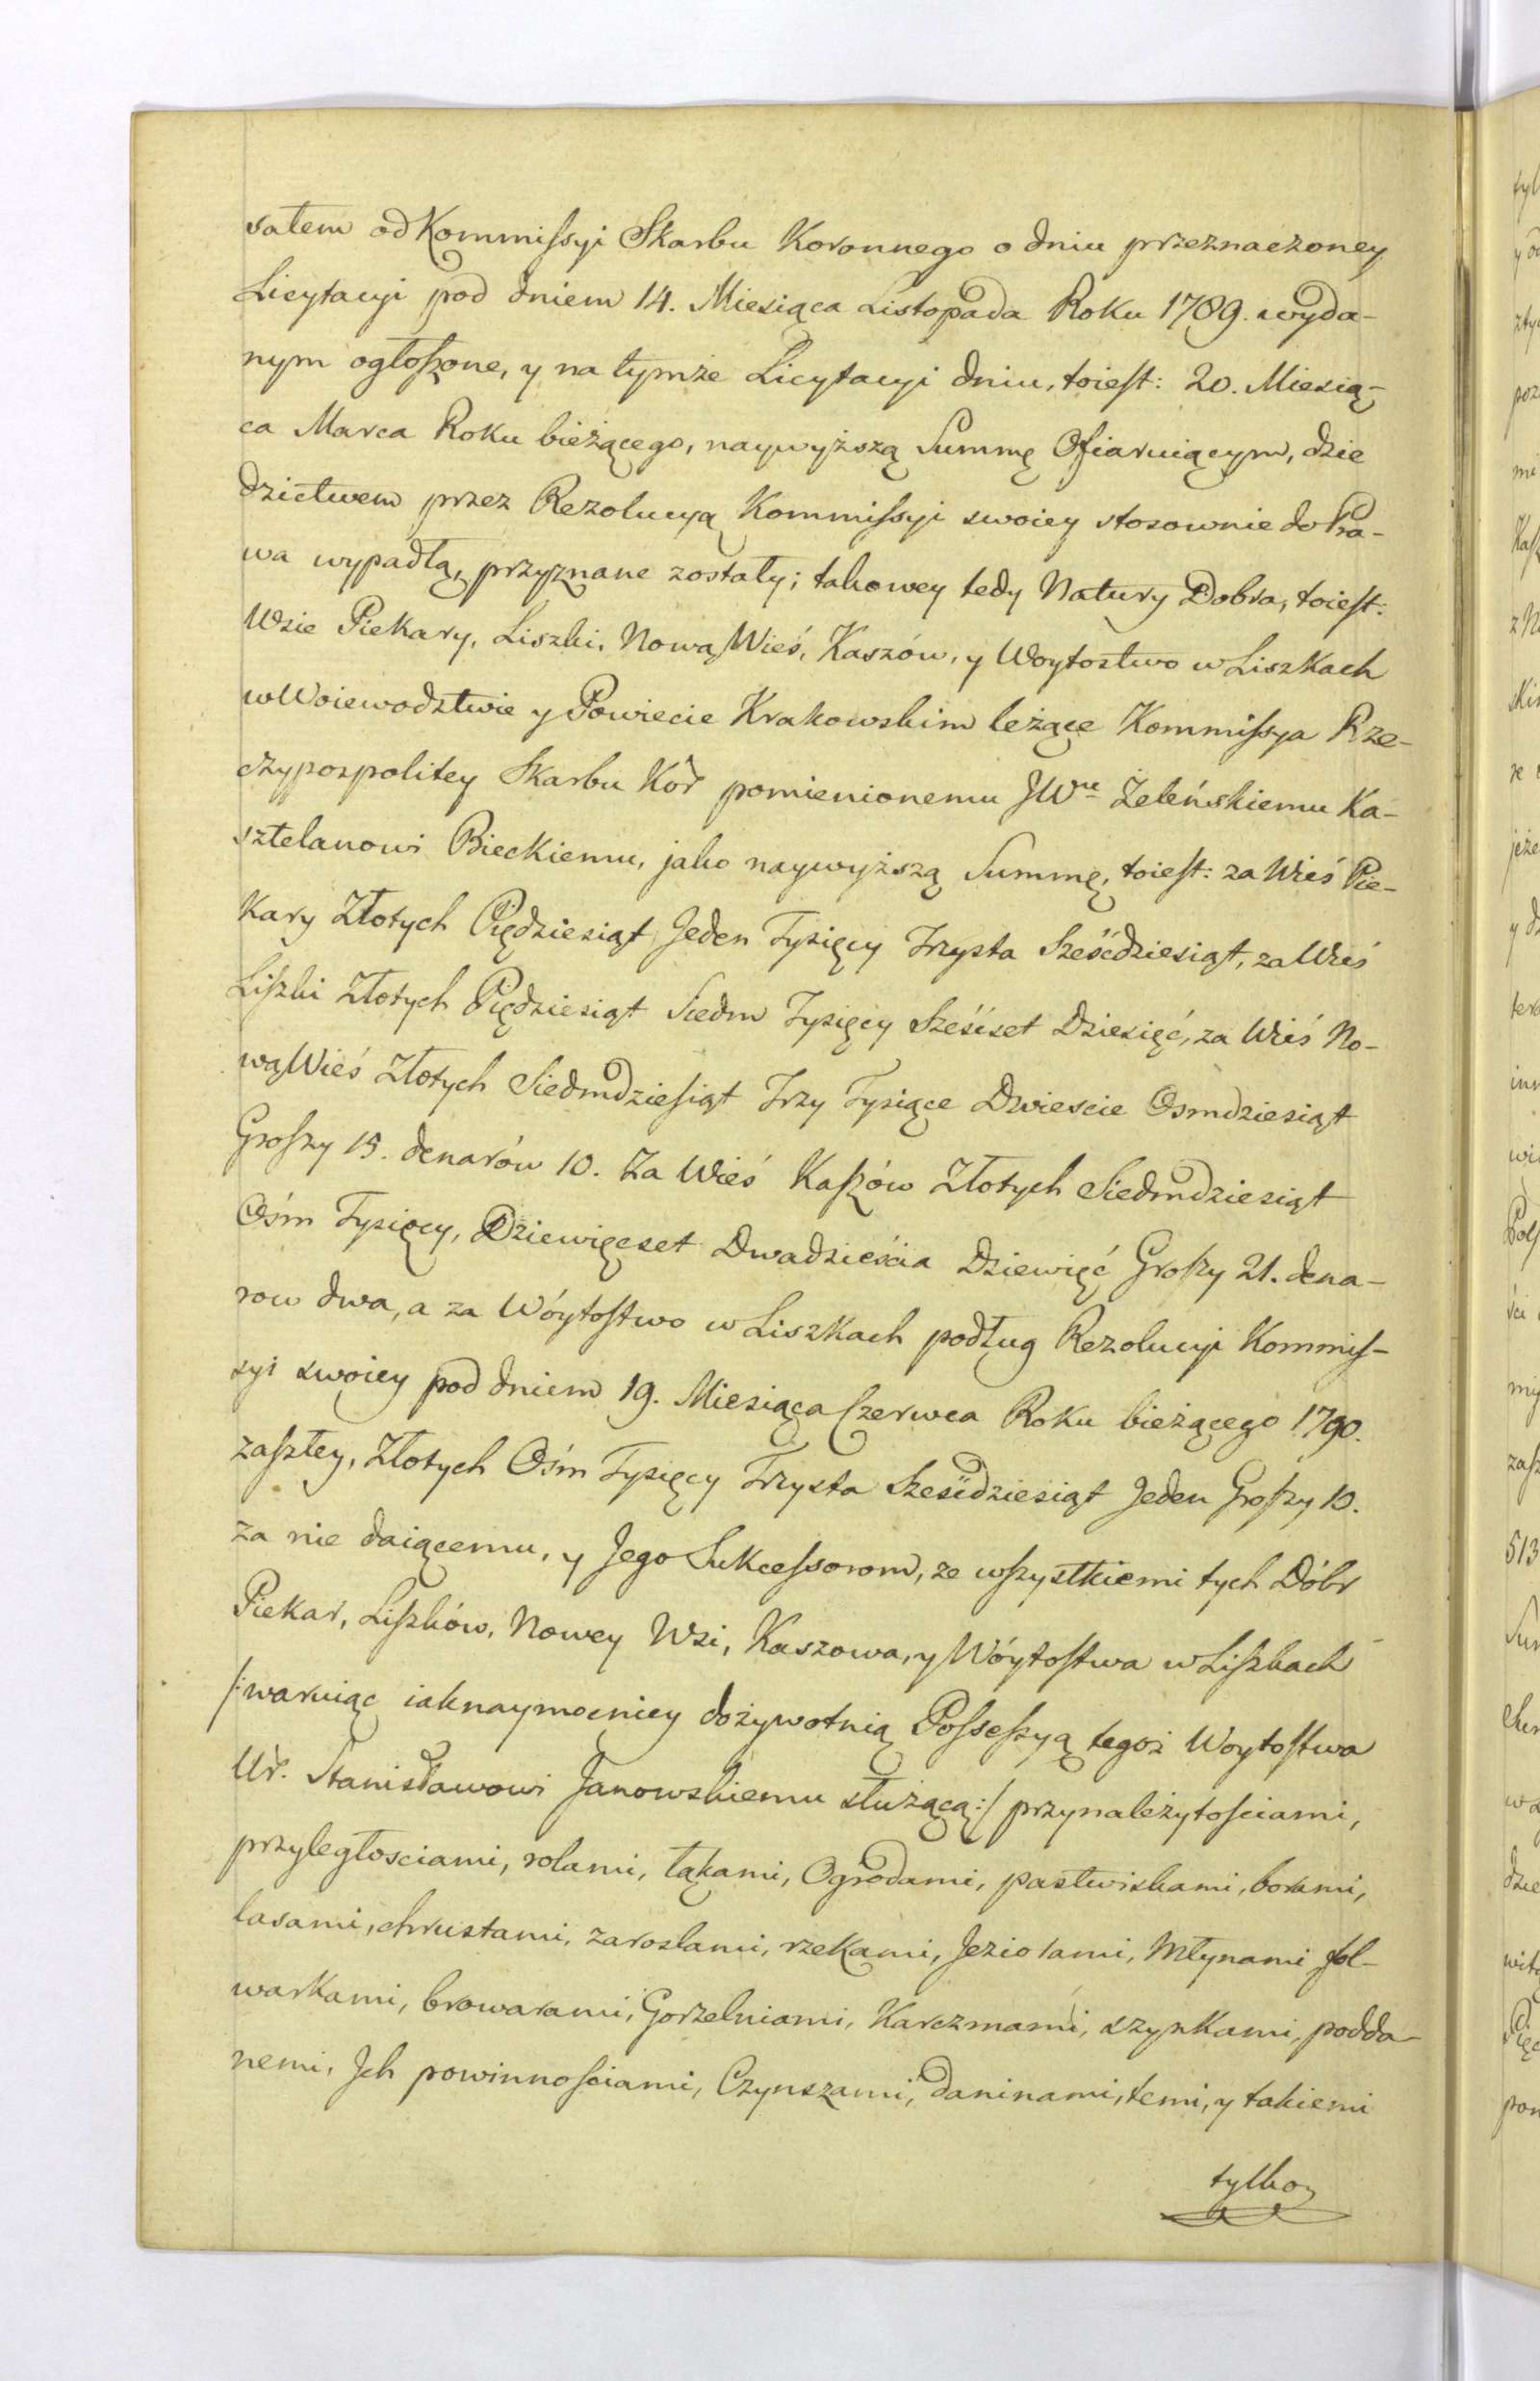 satem od Kommissyi Skarbu Koronnego o dniu przeznaczoney
Licytacyi pod dniem 14. Miesiąca Listopada Roku 1789. wyda-
nym ogłoszone, y na tymże Licytacyi dniu, toiest: 20. Miesią-
ca Marca Roku bieżącego, naywyższą Summę Ofiaruiącym, dzie
dzictwem przez Rezolucyą Kommissyi swoiey stosownie do Pra-
wa wypadłą, przyznane zostały; takowey tedy Natury Dobra, toiest:
Wsie Piekary, Liszki, Nową Wieś, Kaszów, y Woytostwo w Liszkach
w Woiewodztwie y Powiecie Krakowskim leżące Kommissya Rze-
czypospolitey Skarbu Kor pomienionemu JWne Żeleńskiemu Ka-
sztelanowi Bieckiemu, jako naywyższą Summę, toiest: za Wieś Pie-
kary Złotych Pięдziesiąt Jeden Tysięcy Trzysta Sześćdziesiąt, za Wieś
Liszki Złotych Piędziesiąt Siedm Tysięcy Sześćset Dziesięć, za Wieś No-
wą Wieś Złotych Siedmdziesiąt Trzy Tysiące Dwieście Osmdziesiąt
Groszy 15. denarów 10. Za Wieś Kaszów Złotych Siedmdziesiąt
Ośm Tysięcy, Dziewięcset Dwadzieścia Dziewięć Groszy 21. dena-
row dwa, a za Wóytostwo w Liszkach podług Rezolucyi Kommis-
syi swoiey pod dniem 19. Miesiąca Czerwca Roku bieżącego 1790.
zaszłey, Złotych Ośm Tysięcy Trzysta Sześćdziesiąt Jeden Groszy 10.
za nie daiącemu, y Jego Sukcessorom, ze wszystkiemi tych Dóbr
Piekar, Liszków, Nowey Wsi, Kaszowa, y Wóytostwa w Liszkach
/:waruiąc iaknaymocniey dożywotnią Possessyą tegoż Woytostwa
Ur. Stanisławowi Janowskiemu służącą:/ przynależytościami,
przyległosciami, rolami, łąkami, Ogrodami, pastwiskami, borami,
lasami, chrustami, zaroslami, rzekami, Jeziorami, Młynami fol-
warkami, browarami, Gorzelniami, Karczmami, szynkami, podda-
nemi, Jch powinnościami, Czynszami, daninami, temi, y takiemi
tylko